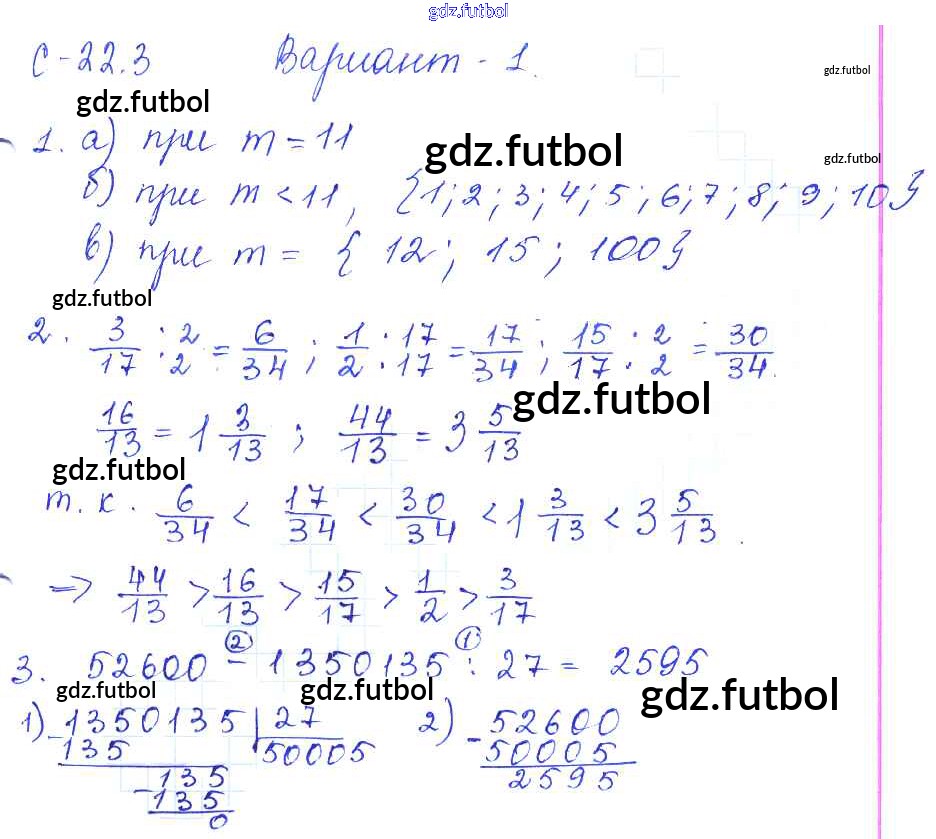 gdz.futbol
С-22.3 Вариант - 1.
gdz.futbol
gdz.futbol
1. а) при m = 11
gdz.futbol
gdz.futbol
б) при m < 11, {1; 2; 3; 4; 5; 6; 7; 8; 9; 10}
в) при m = { 12; 15; 100}
gdz.futbol
2. 3/17 · 2/2 = 6/34 ; 1/2 · 17/17 = 17/34 ; 15/17 · 2/2 = 30/34.
gdz.futbol
16/13 = 1 3/13 ; 44/13 = 3 5/13
gdz.futbol
т.к. 6/34 < 17/34 < 30/34 < 1 3/13 < 3 5/13.
=> 44/13 > 16/13 > 15/17 > 1/2 > 3/17
② ①
3. 52600 - 1350135 : 27 = 2595
gdz.futbol gdz.futbol gdz.futbol
1) - 1350135 | 27 2) - 52600
135 50005 50005
- 135 2595
135
0